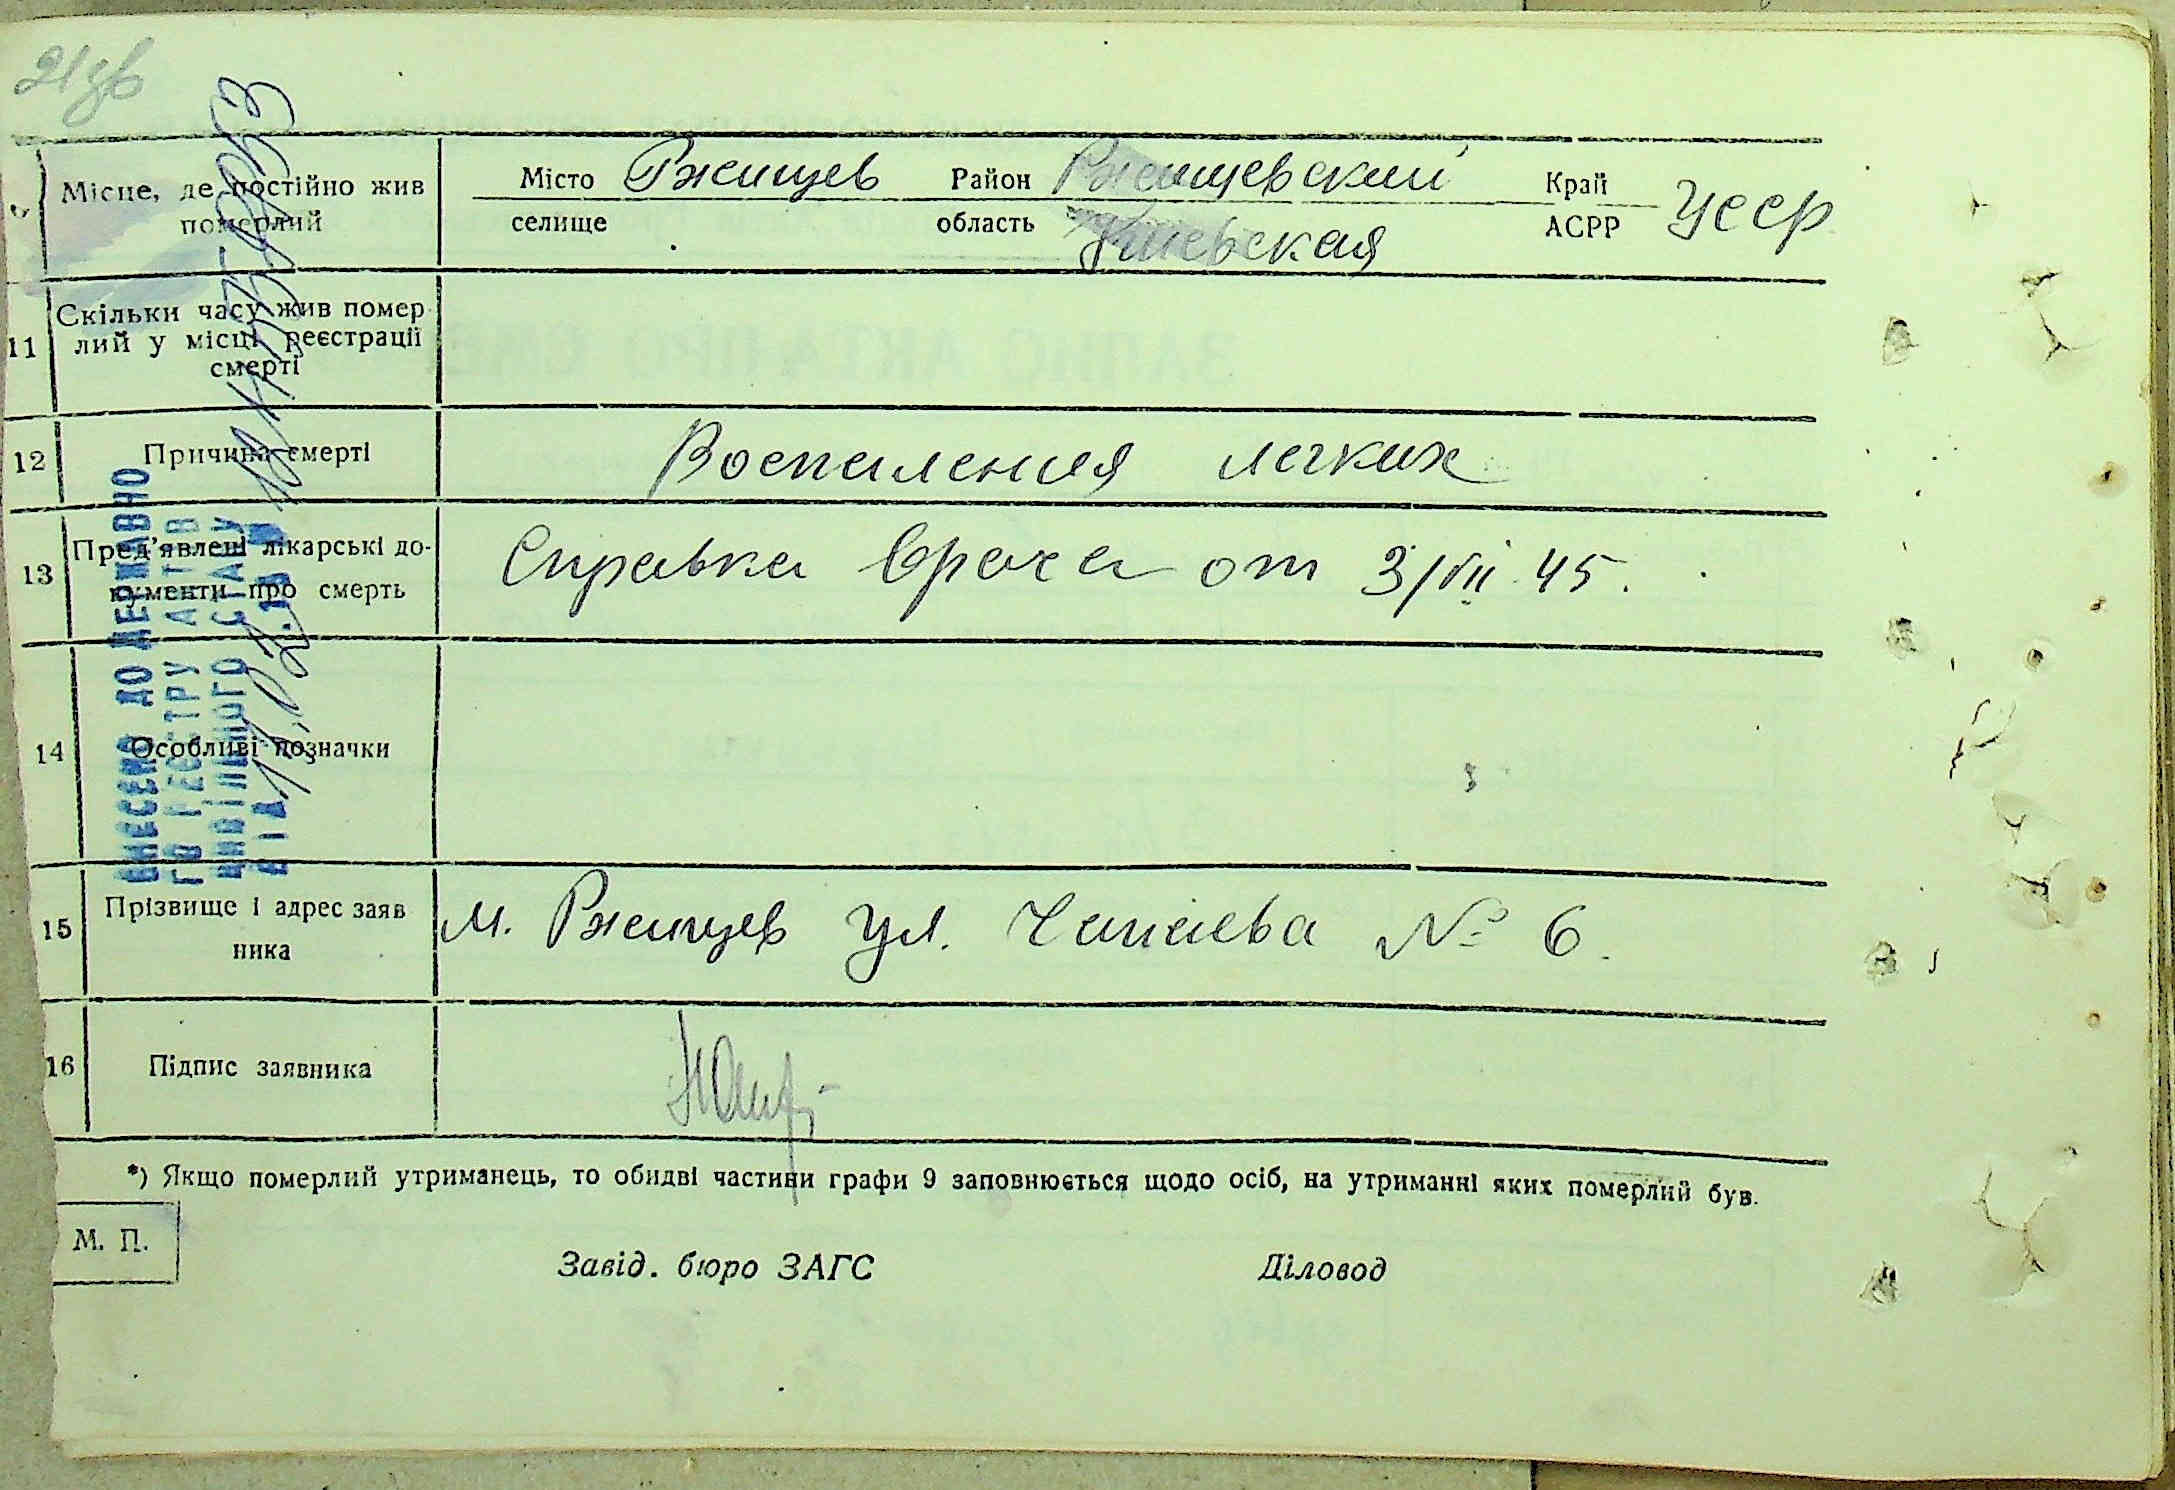 21зв
Місце, де постійно жив
померлий
Місто Ржищев Район Ржищевский Край УССР
селище область Киевская АСРР
11 Скільки часу жив помер
лий у місці реєстрації
смерті
12 Причина смерті Воспаления легких
13 Пред'явлені лікарські до-
кументи про смерть
Справка врача от 3/VII 45.
14 Особливі позначки
15 Прізвище і адрес заяв
ника
м. Ржищев ул. Чапаева № 6.
16 Підпис заявника
ВНЕСЕНО ДО ДЕРЖАВНО
ГО РЕЄСТРУ АКТІВ
ЦИВІЛЬНОГО СТАНУ
ВІД
*) Якщо померлий утриманець, то обидві частини графи 9 заповнюється щодо осіб, на утриманні яких померлий був.
М. П.
Завід. бюро ЗАГС Діловод